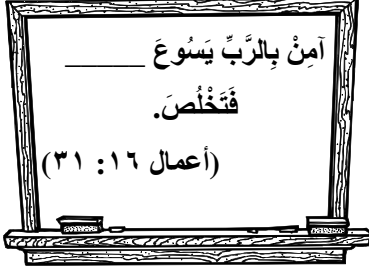 آمِنْ بِالرَّبِّ يَسُوعَ ______
فَتَخْلُصَ.
(أعمال ١٦: ٣١)